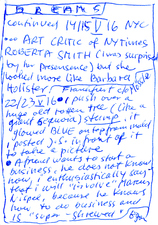 DREAMS
continues 14/15 V 16 NYC
ART CRITIC OF NYTimes
ROBERTA SMITH (I was surprised
by her presence) but she
looked more like Barbara
Holister / Frankfurt
22/23 V 16 I push over a
huge old rotten tree (like a
giant Sequoia) stump, it
glowed BLUE on top from inside
I posted J.S. in front of it
to take a picture
A friend wants to start a
business, he does not know
how, I enthusiastically say
that I will "involve" Marcus
because he knows
how to do business and
is "super-shrewd"